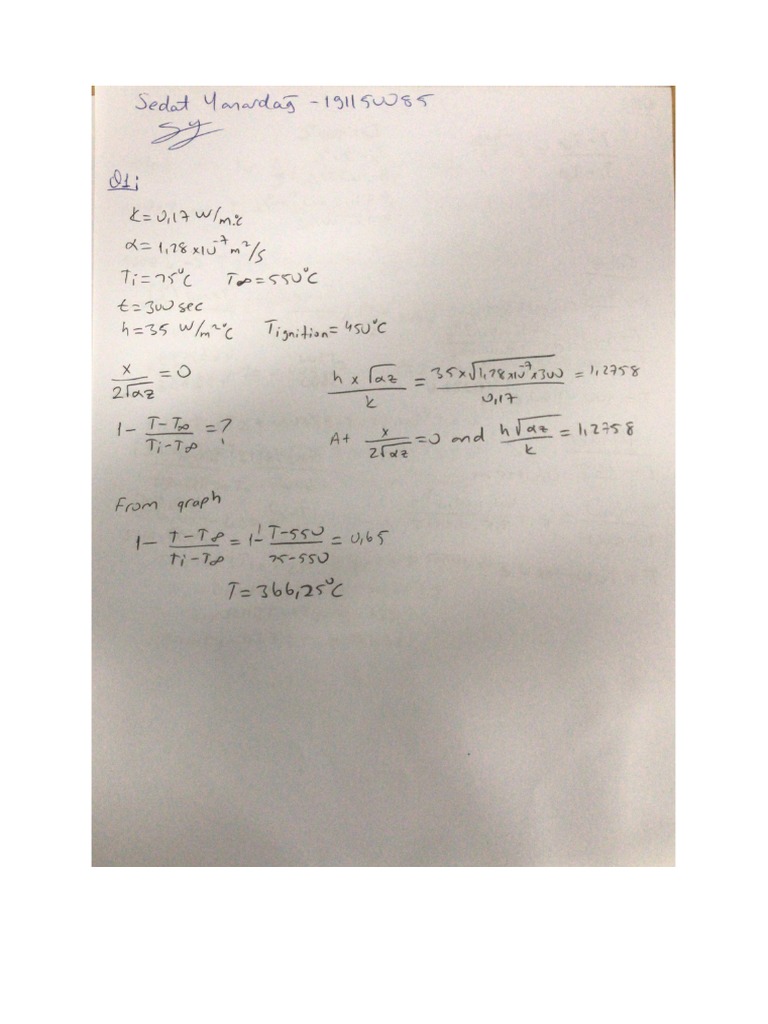 Sedat Yanardağ - 191150085
Q1;
k = 0,17 W/m.°c
α = 1,28 × 10⁻⁷ m²/s
Ti = 25°C T∞ = 550°C
t = 300 sec
h = 35 W/m²°C Tignition = 450°C
x/(2√αz) = 0 h × √αz / k = 35×√(1,28×10⁻⁷×300) / 0,17 = 1,2758
1 - (T - T∞)/(Ti - T∞) = ? At x/(2√αz) = 0 and h√αz/k = 1,2758
From graph
1 - (t - T∞)/(ti - T∞) = 1 - (T - 550)/(25 - 550) = 0,65
T = 366,25°C